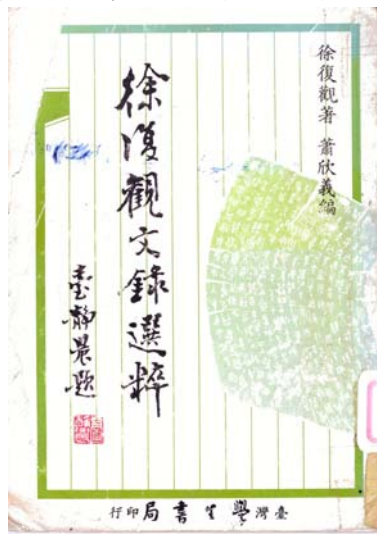 徐復觀著 蕭欣義編
徐復觀文錄選粹
臺靜農題
臺灣學生書局印行